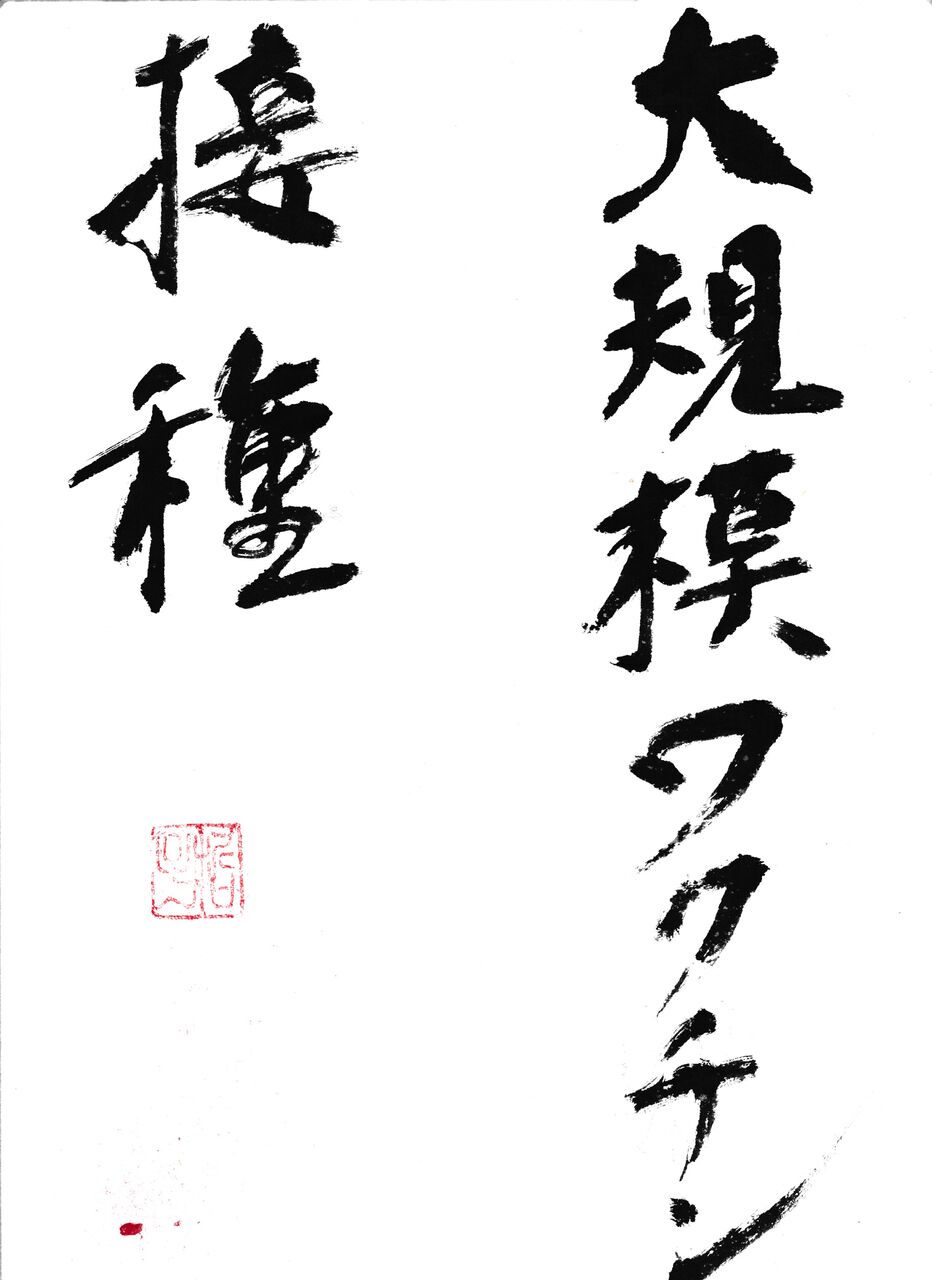 大規模ワクチン
接種